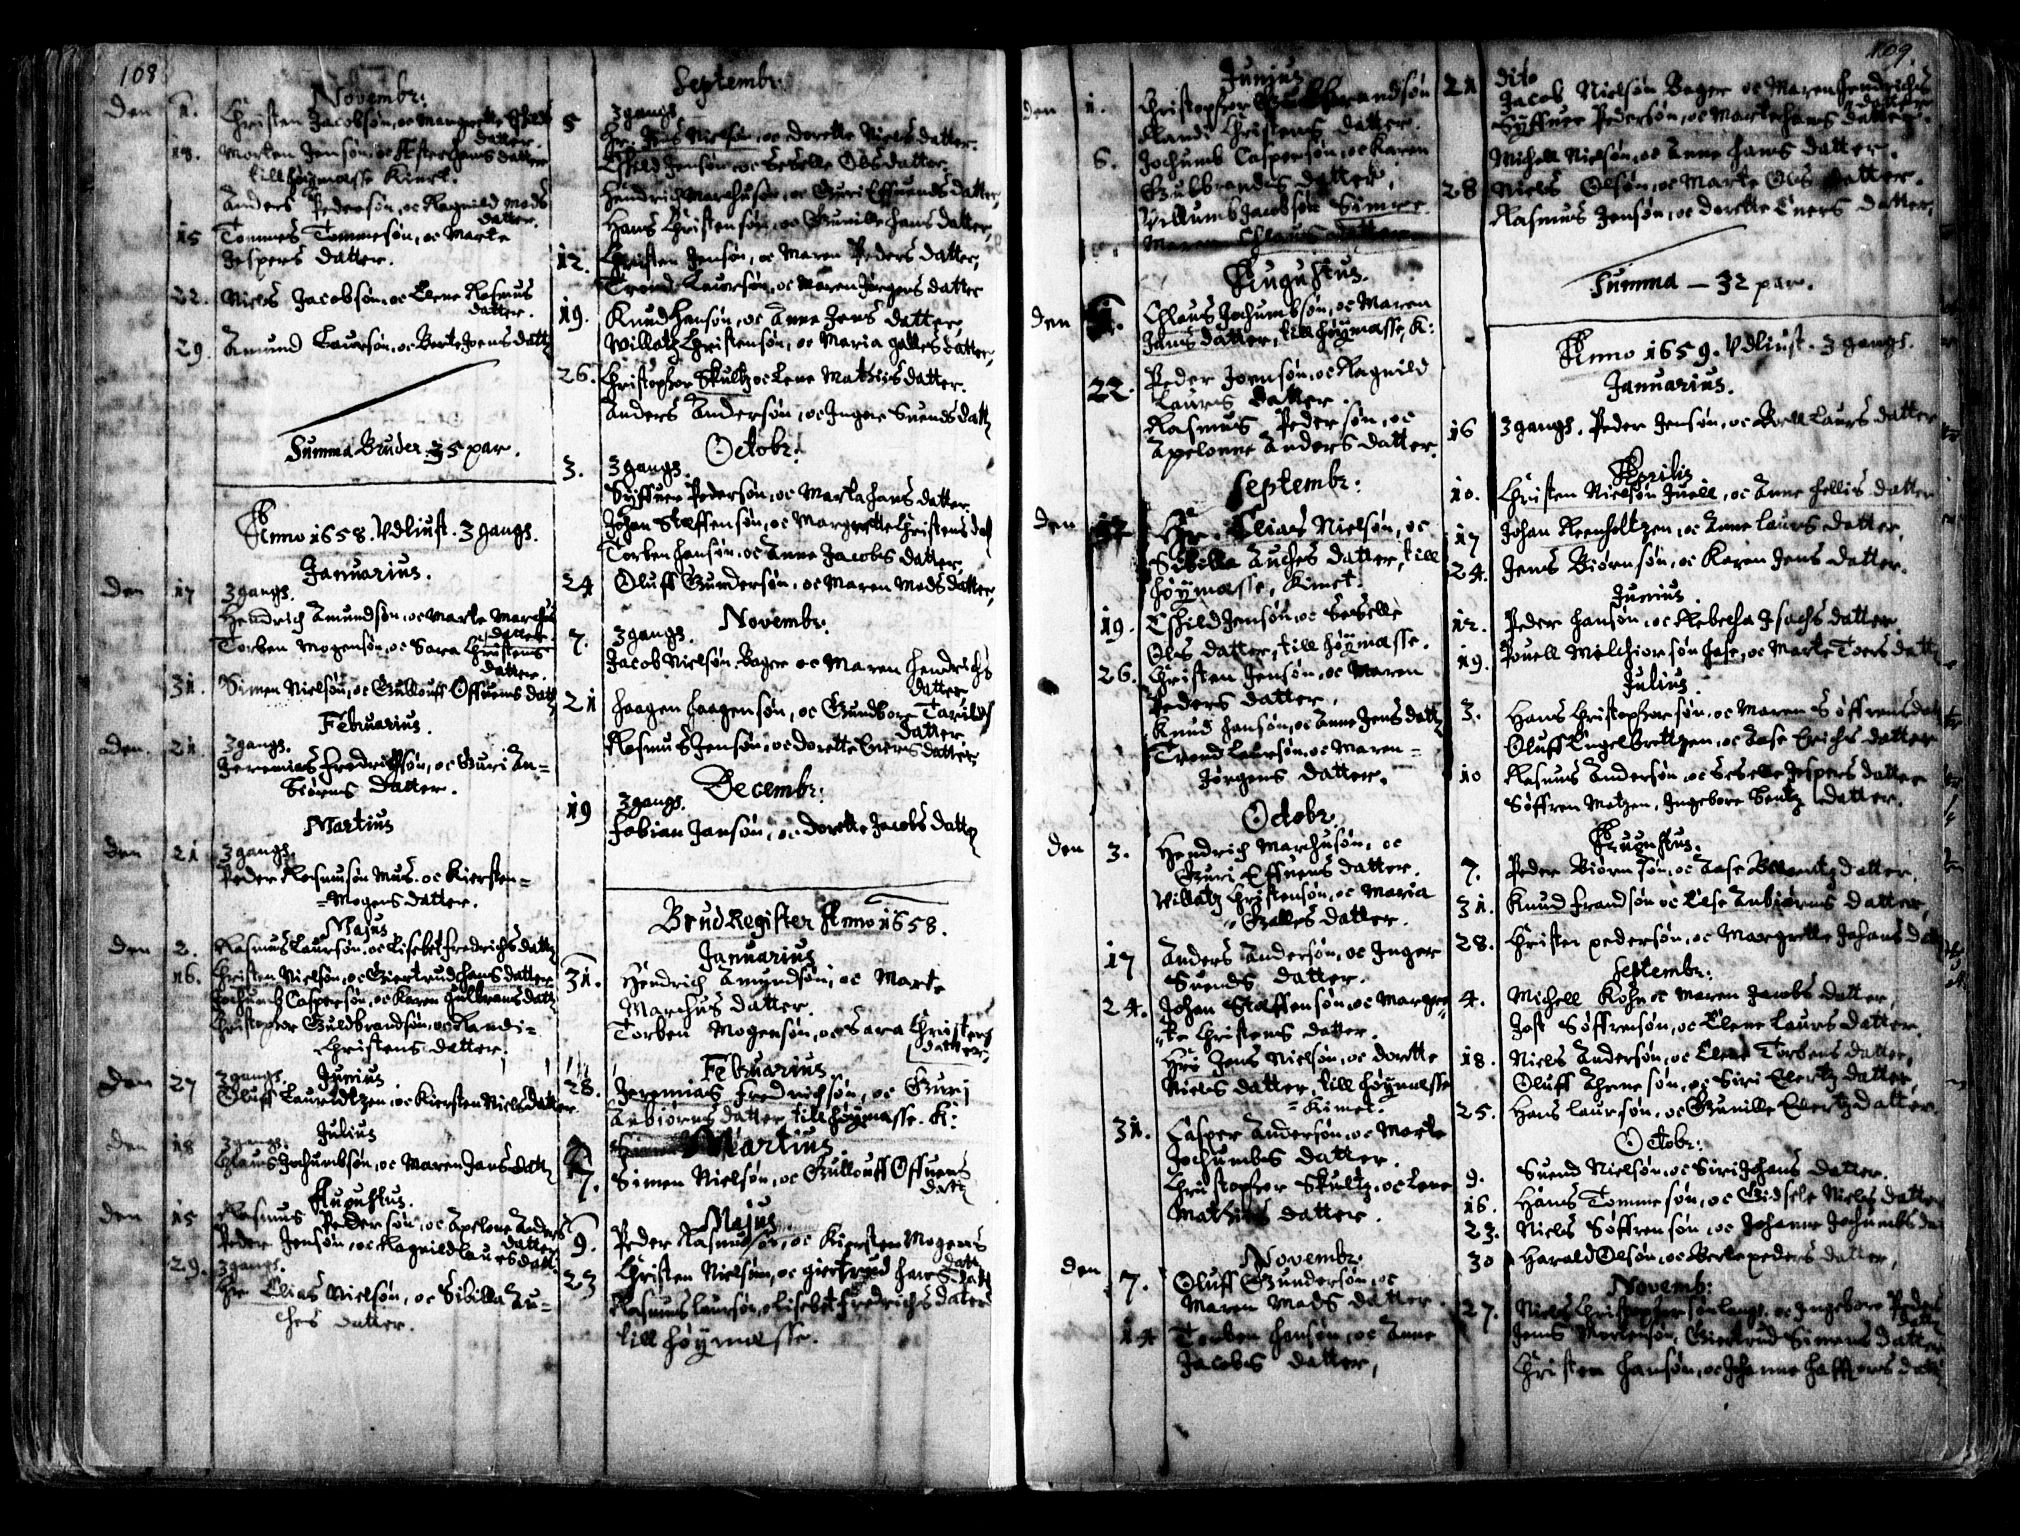 108
Novembr:
Den 1. Christen Jacobsøn, oc Margrette
datter.
18. Morten Jensøn, oc datter
till høymæsse Kimet.
Anders Pedersøn, oc Ragnild Mads
datter.
15 Tommes Tommesøn, oc Marte
Jespers datter.
22. Niels Jacobsøn, oc Elene Rasmus
datter.
29. Amund Laursøn, oc Berte Joens dattr
Summa Bruder 35 par.
Anno 1658. Udliust. 3 gangs.
Januarius.
Den 17 3 gangs.
Hendrich Amundsøn, oc Marte Marchus
datter.
Torben Mogensøn, oc Sara Christens
datter.
31. Simen Nielsøn, oc Gullouff Offuens dattr
Februarius.
Den 21 3 gangs.
Jeremias Fredrichsøn, oc Guri An=
biørns datter.
Martius
den 21 3 gangs.
Peder Rasmusøn Mus. oc Kiersten=
=Mogens datter.
Majus
den 2. Rasmus Laursøn, oc Lisebet Fredrichs dattr
16. Christen Nielsøn, oc Giertrud Hans datter
Jochumb Caspersøn, oc Karen Gulbrans dattr
Christopher Guldbrandsøn, oc Randi=
Christens datter.
Junius.
Den 27 3 gangs.
Oluff Lauridtzen, oc Kiersten Niels datter
Julius
den 18 3 gangs.
Claus Jochumbsøn, oc Maren Jans dattr
Augustus.
den 15 Rasmus Pedersøn, oc Apelone Anders
datter
Peder Jensøn, oc Ragnild Laurs dattr
29. 3 gangs.
Hr Elias Nielsøn, oc Sibilla Au=
ches datter.
Septembr:
5 3 gangs.
Hr. Jens Nielsøn, oc Dorette Niels datter.
Eskild Jensøn, oc Seselle Ols datter,
Hendrich Marchusøn, oc Guri Effuends datter,
Hans Christensøn, oc Gunille Hans datter,
12. Christen Jensøn, oc Maren Peders datter,
Trond Laursøn, oc Maren Jørgens datter
19. Knud Hansøn, oc Anne Jens datter,
Willatz Christensøn, oc Maria Galles datter,
26. Christopher Skultz oc Lene Mathis datter.
Anders Andersøn, oc Inger Suends dattr
Octobr:
3. 3 gangs.
Syffuer Pedersøn, oc Marta Hans datter
Johan Staffensøn, oc Margrette Christens dat
Torben Hansøn, oc Anne Jacobs datter,
24 Oluff Gundersøn, oc Maren Mads datter,
Novembr:
7. 3 gangs.
Jacob Nielsøn Bager oc Maren Hendrichs
datter
21 Haagen Haagensøn, oc Gundbore Tarilds
datter
Rasmus Jensøn, oc Dorette Eners datter.
Decembr:
19 3 gangs.
Fabian Jansøn, oc Dorette Jacobs dattr
Brud Register Anno 1658.
Januarius
31. Hendrich Amundsøn, oc Marte
Marchus datter.
Torben Mogensøn, oc Sara Christens
datter.
Februarius
28. Jeremias Fredrichsøn, oc Guri
Anbiørns datter, till høymæsse. K:
Martius
7. Simen Nielsøn, oc Gullouff Offuens
dattr
Majus
9. Peder Rasmusøn, oc Kiersten Mogens
dattr
23 Christen Nielsøn, oc Giertrud Hans dattr
Rasmus Laursøn, oc Lisebet Fredrichs datter
till høymæsse.
109.
Junius
den 1. Christopher Gulbrandsøn
Randi Christens datter.
6. Jochumb Caspersøn, oc Karen
Gulbrandus datter,
Villumb Jacobsøn
Maren Claus datter
Augustus.
den 1. Claus Jochumbsøn, oc Maren
Jans datter, till høymæsse, K:
22. Peder Joensøn, oc Ragnild
Laurs datter.
Rasmus Pedersøn, oc
Apelonne Anders datter.
Septembr:
den 12 Hr. Elias Nielsøn, oc
Sibilla Auches datter, till
høymæsse, Kimet.
19. Eskild Jensøn, oc Seselle
Ols datter, till høymæsse.
26. Christen Jensøn, oc Maren
Peders datter,
Knud Hansøn, oc Anne Jens dattr
Trond Laursøn, oc Maren=
Jørgens datter.
Octobr
den 3. Hendrich Marchusøn, oc
Guri Effuens datter.
Villatz Christensøn, oc Maria
Galles datter.
17 Anders Andersøn, oc Inger
Suends datter.
24. Johan Staffensøn, oc Margre=
tte Christens datter.
Hr: Jens Nielsøn, oc Dorette
Niels datter, till høymæsse
=Kimet.
31. Casper Andersøn, oc Marte
Jochumbs datter.
Christopher Skultz, oc Lene
Mathis datter.
Novembr:
den 7. Oluff Gundersøn, oc
Maren Mads datter
14 Torben Hansøn, oc Anne
Jacobs datter,
21 dito
Jacob Nielsøn Bager oc Maren Hendrichs
datter
Syffuer Pedersøn, oc Marte Hans datter.
Michell Nielsøn, oc Anne Hans datter.
28 Niels Olsøn, oc Marte Ols datter.
Rasmus Jensøn, oc Dorette Eners datter,
Summa — 32 par.
Anno 1659. Udliust. 3 gangs.
Januarius.
16 3 gangs. Peder Jensøn, oc Boell Laurs datter
Aprilis
10. Christen Nielsøn Juell, oc Anne Hellis datter
17 Johan Reenholtzen, oc Anne Laurs datter,
24. Jens Biørnsøn, oc Karen Jens datter.
Junius.
12. Peder Hansøn, oc Rebecha Isachs datter
19. Pouell Melchiorsøn Hase, oc Marte Toers dattr
Julius
3. Hans Christophersøn, oc Maren Søffrens dattr
Oluff Engelbrettzen, oc Aase Erichs datter
10 Rasmus Andersøn, oc Seselle Jespers datter
Søffren Matzen, Ingebore Bentz datter.
Augustus.
7. Peder Biørnsøn, oc Aase datter.
31. Knud Frandsøn oc Else Anbiørns datter,
28. Christen Pedersøn, oc Margrette Johans dattr
Septembr:
4. Michell Kohn oc Maren Jacobs datter,
Jost Søffrensøn, oc Elene Laurs datter.
18. Niels Andersøn, oc Elene Torbens datter,
Oluff Arnesøn, oc Siri Evertz datter,
25. Hans Laursøn, oc Gunille Evertz datter
Octobr:
9. Suend Nielsøn, oc Siri Johans datter.
16. Hans Tommesøn, oc Gidsele Niels datter
23. Niels Søffrensøn, oc Johanne Jochumbs da
30 Harald Olsøn, oc Berte Peders datter,
Novemb:
27. Niels Christophersøn Lange, oc Ingebore Peders
dattr
Jens Mortensøn, Giertrud Simens datter
Christen Hansøn, oc Johanne Haffuors dattr